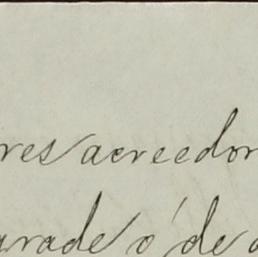 res acreedor
grade o' de a